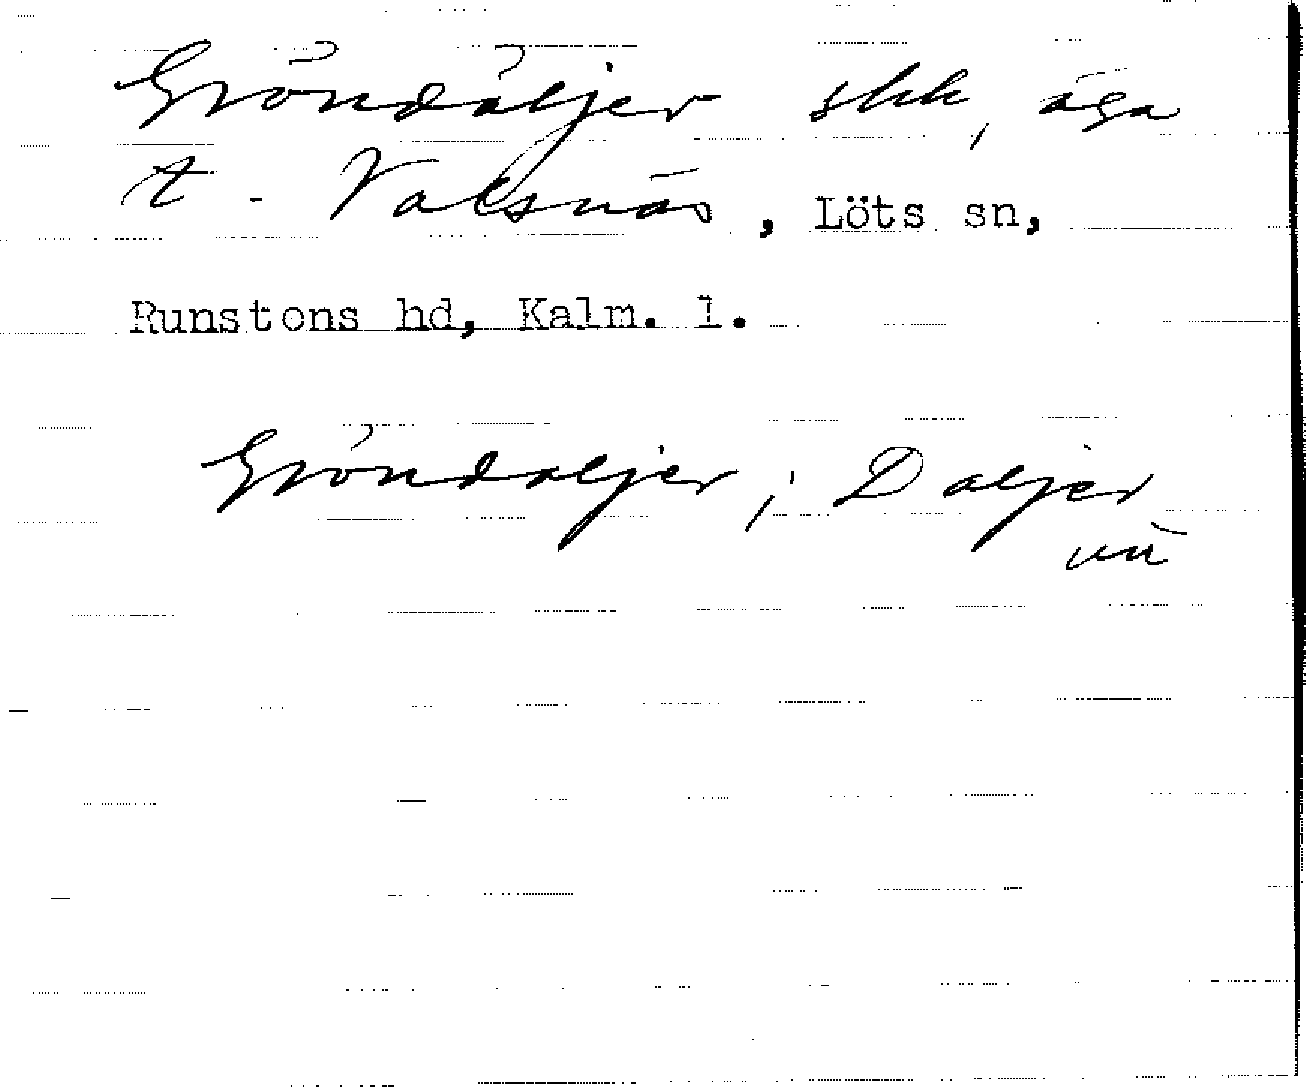 Gröndäljer skk, äga
t. Valsnäs, Löts sn,
Runstens hd, Kalm. l.
Gröndaljer; Daljer